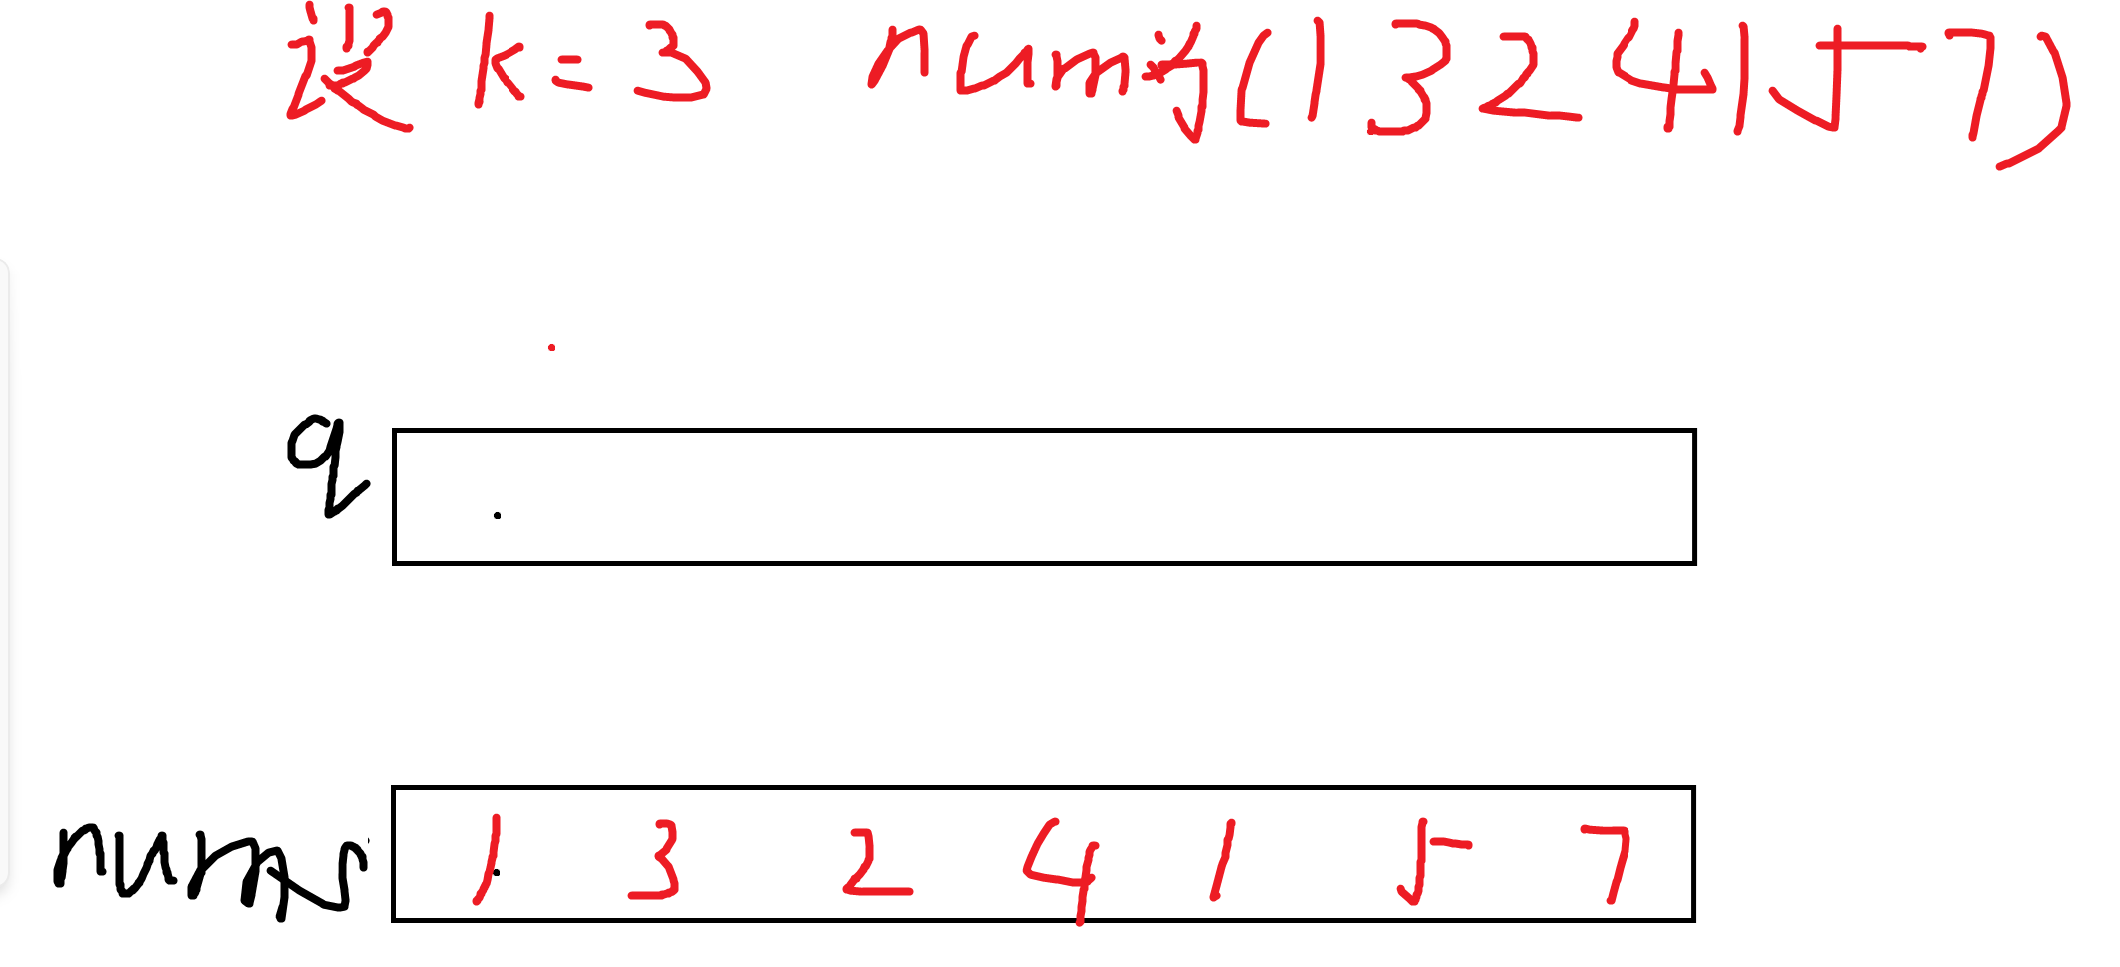 设 k = 3 nums为(1 3 2 4 1 5 7)
q
nums 1 3 2 4 1 5 7